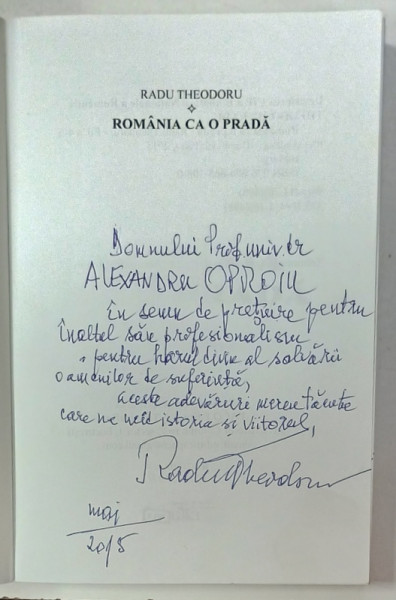 RADU THEODORU
ROMÂNIA CA O PRADĂ
Domnului Prof.univ.dr
ALEXANDRU OPROIU
în semn de prețuire pentru
înaltul său profesionalism
și pentru harul divin al salvării
oamenilor de suferință,
aceste adevăruri
care ne ucid istoria și viitorul,
Radu Theodoru
mai
2015